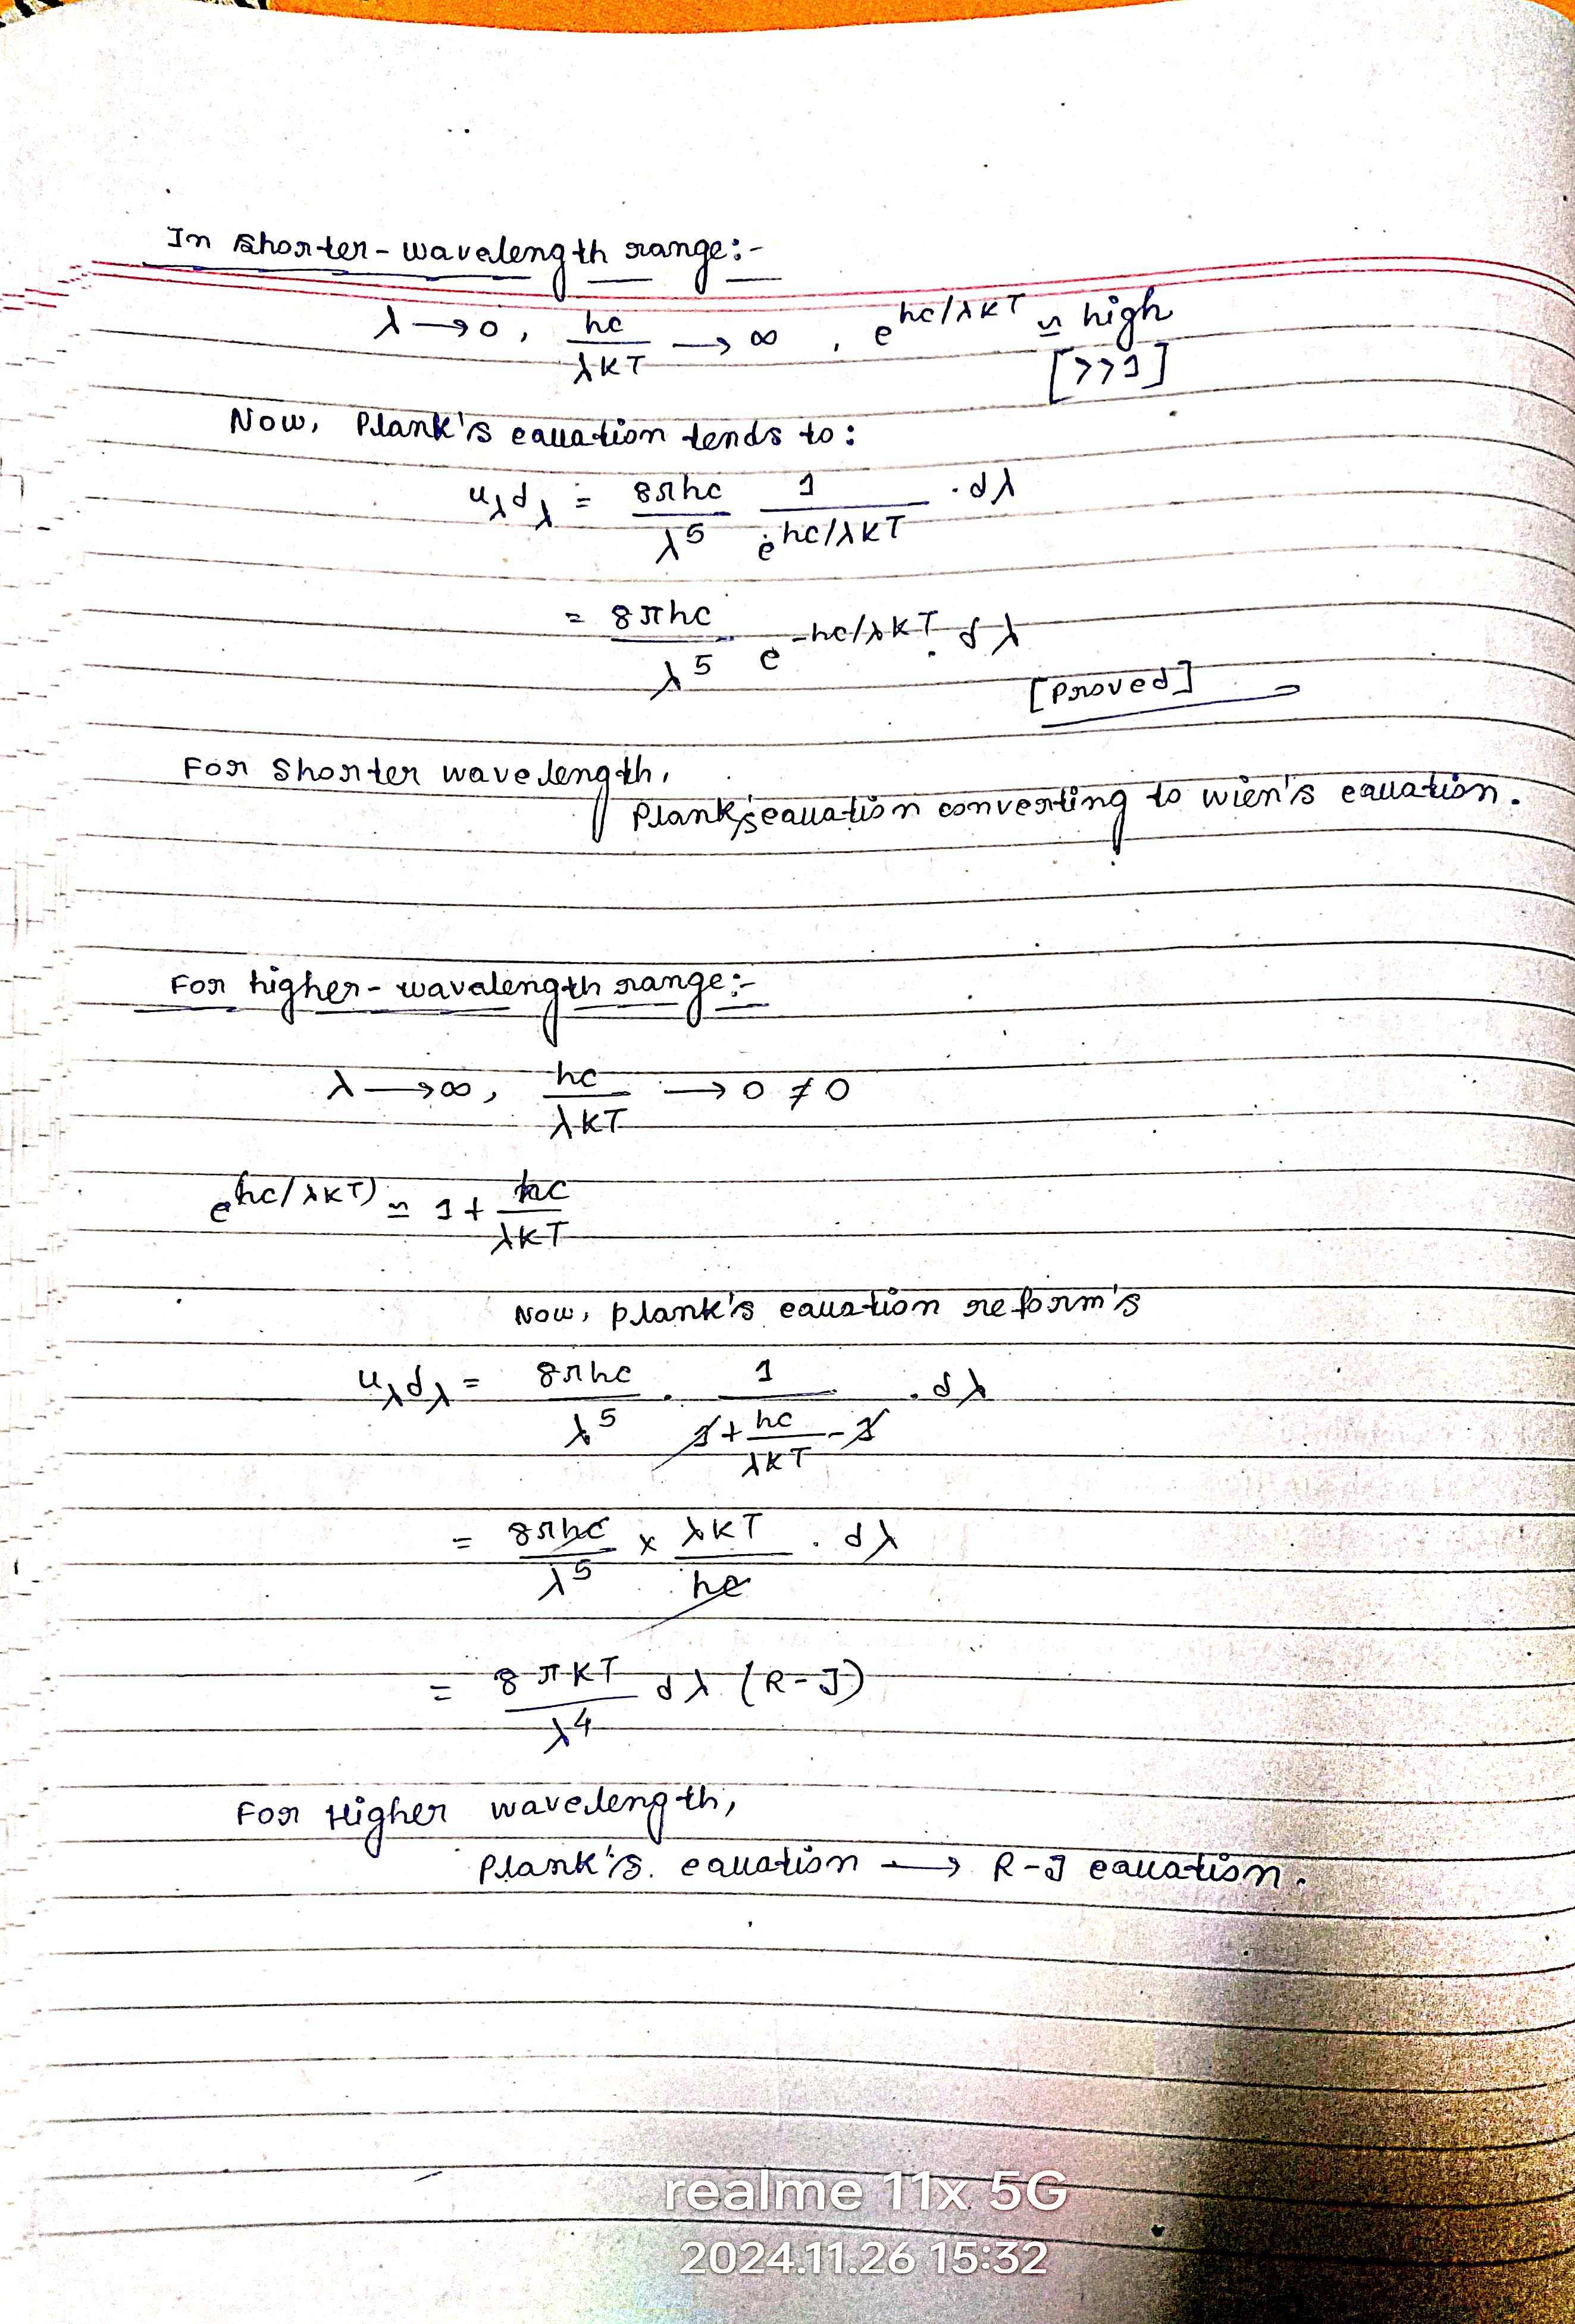 In shorter-wavelength range:-
λ → 0, hc/λKT → ∞, e^hc/λKT ≃ high
[>>1]
Now, Plank's equation tends to:
u_λ d_λ = 8πhc/λ^5 1/e^hc/λKT . dλ
= 8πhc/λ^5 e^-hc/λKT . dλ
[Proved]
For shorter wavelength,
Plank's equation converting to wien's equation.
For higher-wavelength range:-
λ → ∞, hc/λKT → 0 ≠ 0
e^(hc/λKT) ≃ 1 + hc/λKT
Now, plank's equation reform's
u_λ d_λ = 8πhc/λ^5 . 1/(1 + hc/λKT - 1) . dλ
= 8πhc/λ^5 × λKT/hc . dλ
= 8πKT/λ^4 dλ (R-J)
For Higher wavelength,
Plank's. equation → R-J equation.
realme 11x 5G
2024.11.26 15:32